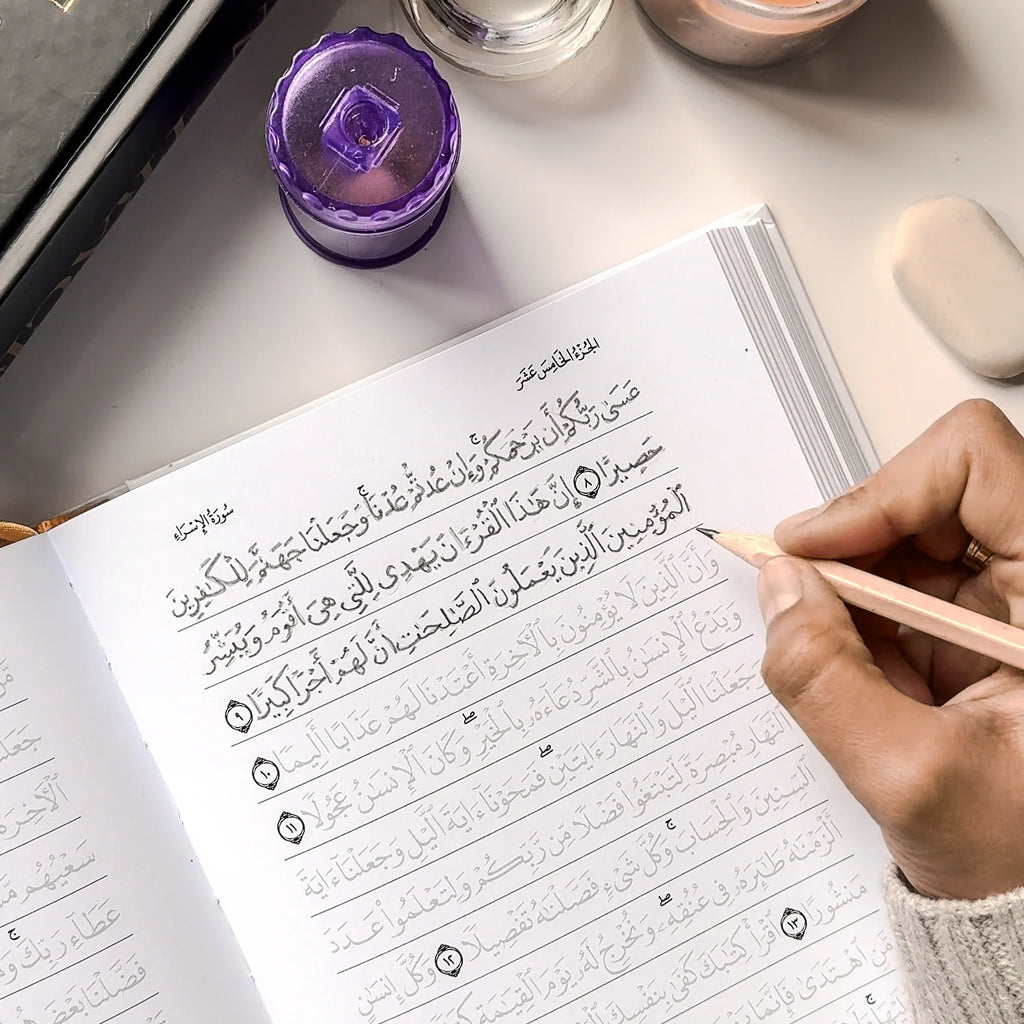 الجُزْءُ الخَامِسَ عَشَرَ
سُورَةُ الإِسْرَاء
عَسَىٰ رَبُّكُمْ أَن يَرْحَمَكُمْ ۚ وَإِنْ عُدتُّمْ عُدْنَا ۚ وَجَعَلْنَا جَهَنَّمَ لِلْكَٰفِرِينَ
حَصِيرًا ٨ إِنَّ هَٰذَا ٱلْقُرْءَانَ يَهْدِى لِلَّتِى هِىَ أَقْوَمُ وَيُبَشِّرُ
ٱلْمُؤْمِنِينَ ٱلَّذِينَ يَعْمَلُونَ ٱلصَّٰلِحَٰتِ أَنَّ لَهُمْ أَجْرًا كَبِيرًا ٩
وَأَنَّ ٱلَّذِينَ لَا يُؤْمِنُونَ بِٱلْأَخِرَةِ أَعْتَدْنَا لَهُمْ عَذَابًا أَلِيمًا ١٠
وَيَدْعُ ٱلْإِنسَٰنُ بِٱلشَّرِّ دُعَآءَهُۥ بِٱلْخَيْرِ ۖ وَكَانَ ٱلْإِنسَٰنُ عَجُولًا ١١
جَعَلْنَا ٱلَّيْلَ وَٱلنَّهَارَ ءَايَتَيْنِ ۖ فَمَحَوْنَآ ءَايَةَ ٱلَّيْلِ وَجَعَلْنَآ ءَايَةَ
ٱلنَّهَارِ مُبْصِرَةً لِّتَبْتَغُوا۟ فَضْلًا مِّن رَّبِّكُمْ وَلِتَعْلَمُوا۟ عَدَدَ
ٱلسِّنِينَ وَٱلْحِسَابَ ۚ وَكُلَّ شَىْءٍ فَصَّلْنَٰهُ تَفْصِيلًا ١٢ وَكُلَّ إِنسَٰنٍ
أَلْزَمْنَٰهُ طَٰٓئِرَهُۥ فِى عُنُقِهِۦ ۖ وَنُخْرِجُ لَهُۥ يَوْمَ ٱلْقِيَٰمَةِ
مَنشُورًا ١٣ ٱقْرَأْ كِتَٰبَكَ كَفَىٰ بِنَفْسِكَ
مَّنِ ٱهْتَدَىٰ فَإِنَّمَا
ٱلْأَخِرَةَ
سَعْيُهُم
عَطَآءِ رَبِّكَ
فَضَّلْنَا بَعْضَهُمْ